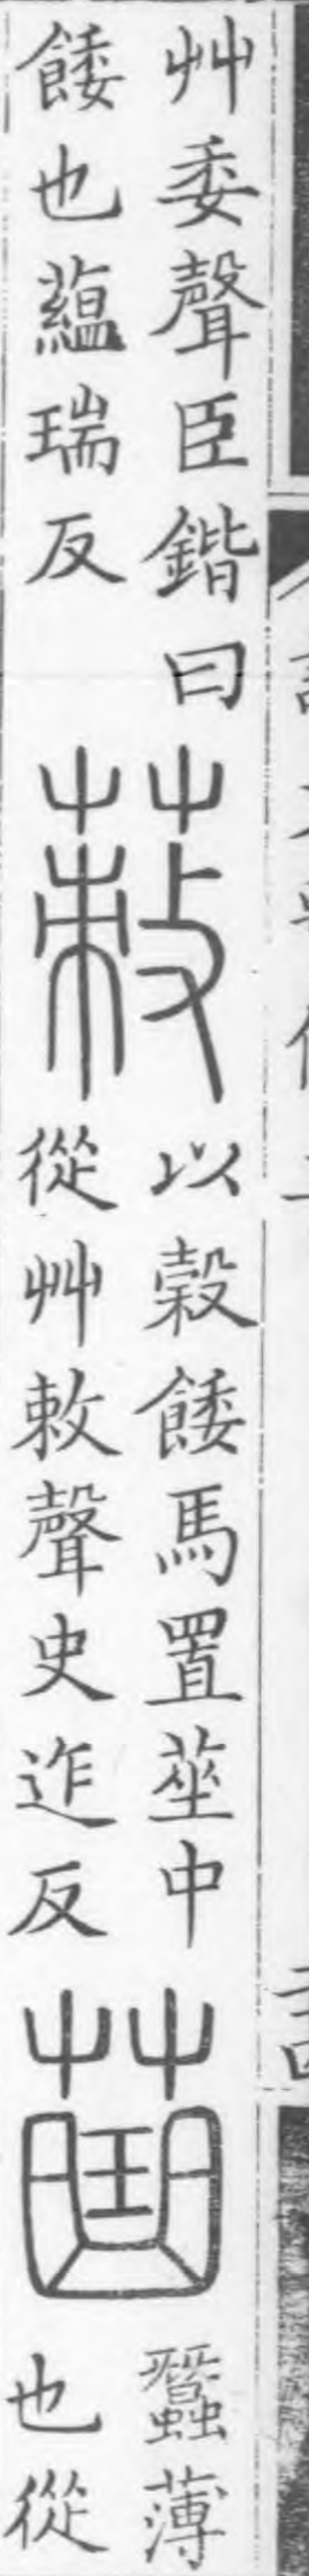 艸委聲臣鍇曰
餧也蘊瑞反
䔩
以穀餧馬置莝中
從艸敕聲史迮反
䒼
蠶薄
也從